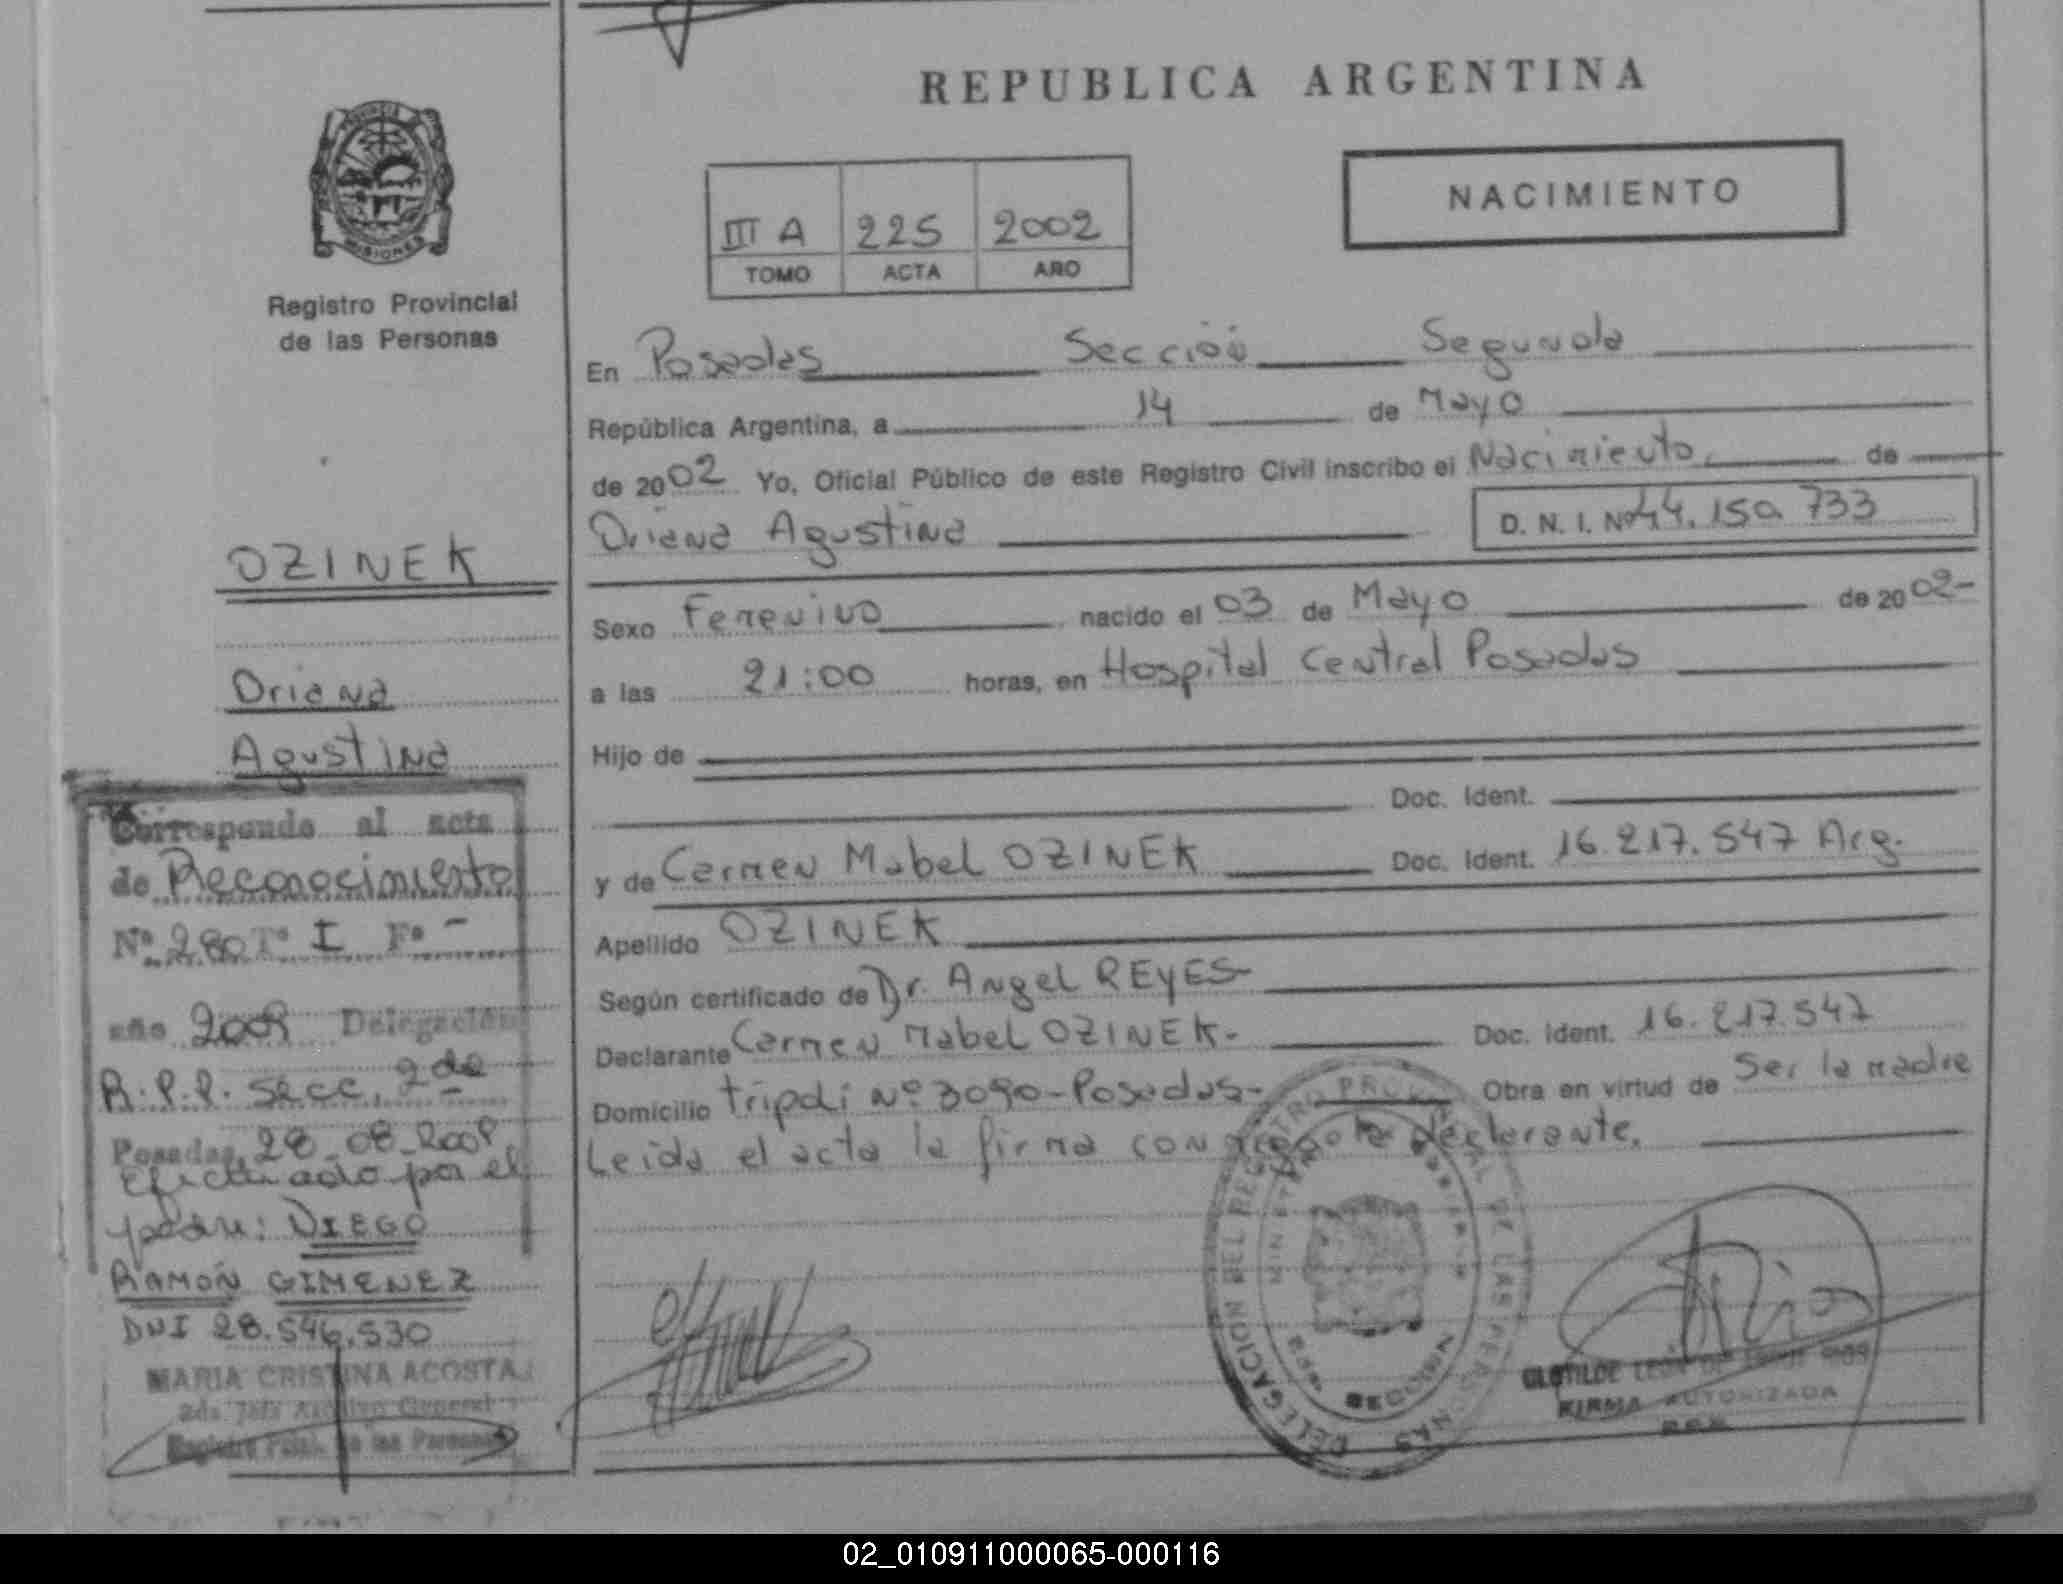 REPUBLICA ARGENTINA
NACIMIENTO
III A 225 2002
TOMO ACTA AÑO
PROVINCIA
MISIONES
Registro Provincial
de las Personas
En Posadas Sección Segunda
República Argentina, a 14 de Mayo
de 2002 Yo, Oficial Público de este Registro Civil inscribo el Nacimiento de
Oriana Agustina
D. N. I. Nº 44.150.733
Sexo Femenino nacido el 03 de Mayo de 2002-
a las 21:00 horas, en Hospital Central Posadas
Hijo de
Doc. Ident.
y de Carmen Mabel OZINEK Doc. Ident. 16.217.547 Arg.
Apellido OZINEK
Según certificado de Dr. Angel REYES-
Declarante Carmen Mabel OZINEK- Doc. Ident. 16.217.547
Domicilio tripoli Nº 3090-Posadas- Obra en virtud de Ser la madre
Leida el acta la firma conmigo la declarante.
OZINEK
Oriana
Agustina
Corresponde al acta
de Reconocimiento
Nº 280 Tº I Fº -
año 2008 Delegación
R.P.P. Secc. 2da
Posadas, 28-08-2008
Efectuado por el
padre: DIEGO
RAMÓN GIMENEZ
DNI 28.546.530
MARIA CRISTINA ACOSTA
2da. Jefe Archivo General
Registro Pcial. de las Personas
DELEGACION DEL REGISTRO PROVINCIAL DE LAS PERSONAS
CLOTILDE LEÓN DE RIOS
FIRMA AUTORIZADA
02_010911000065-000116